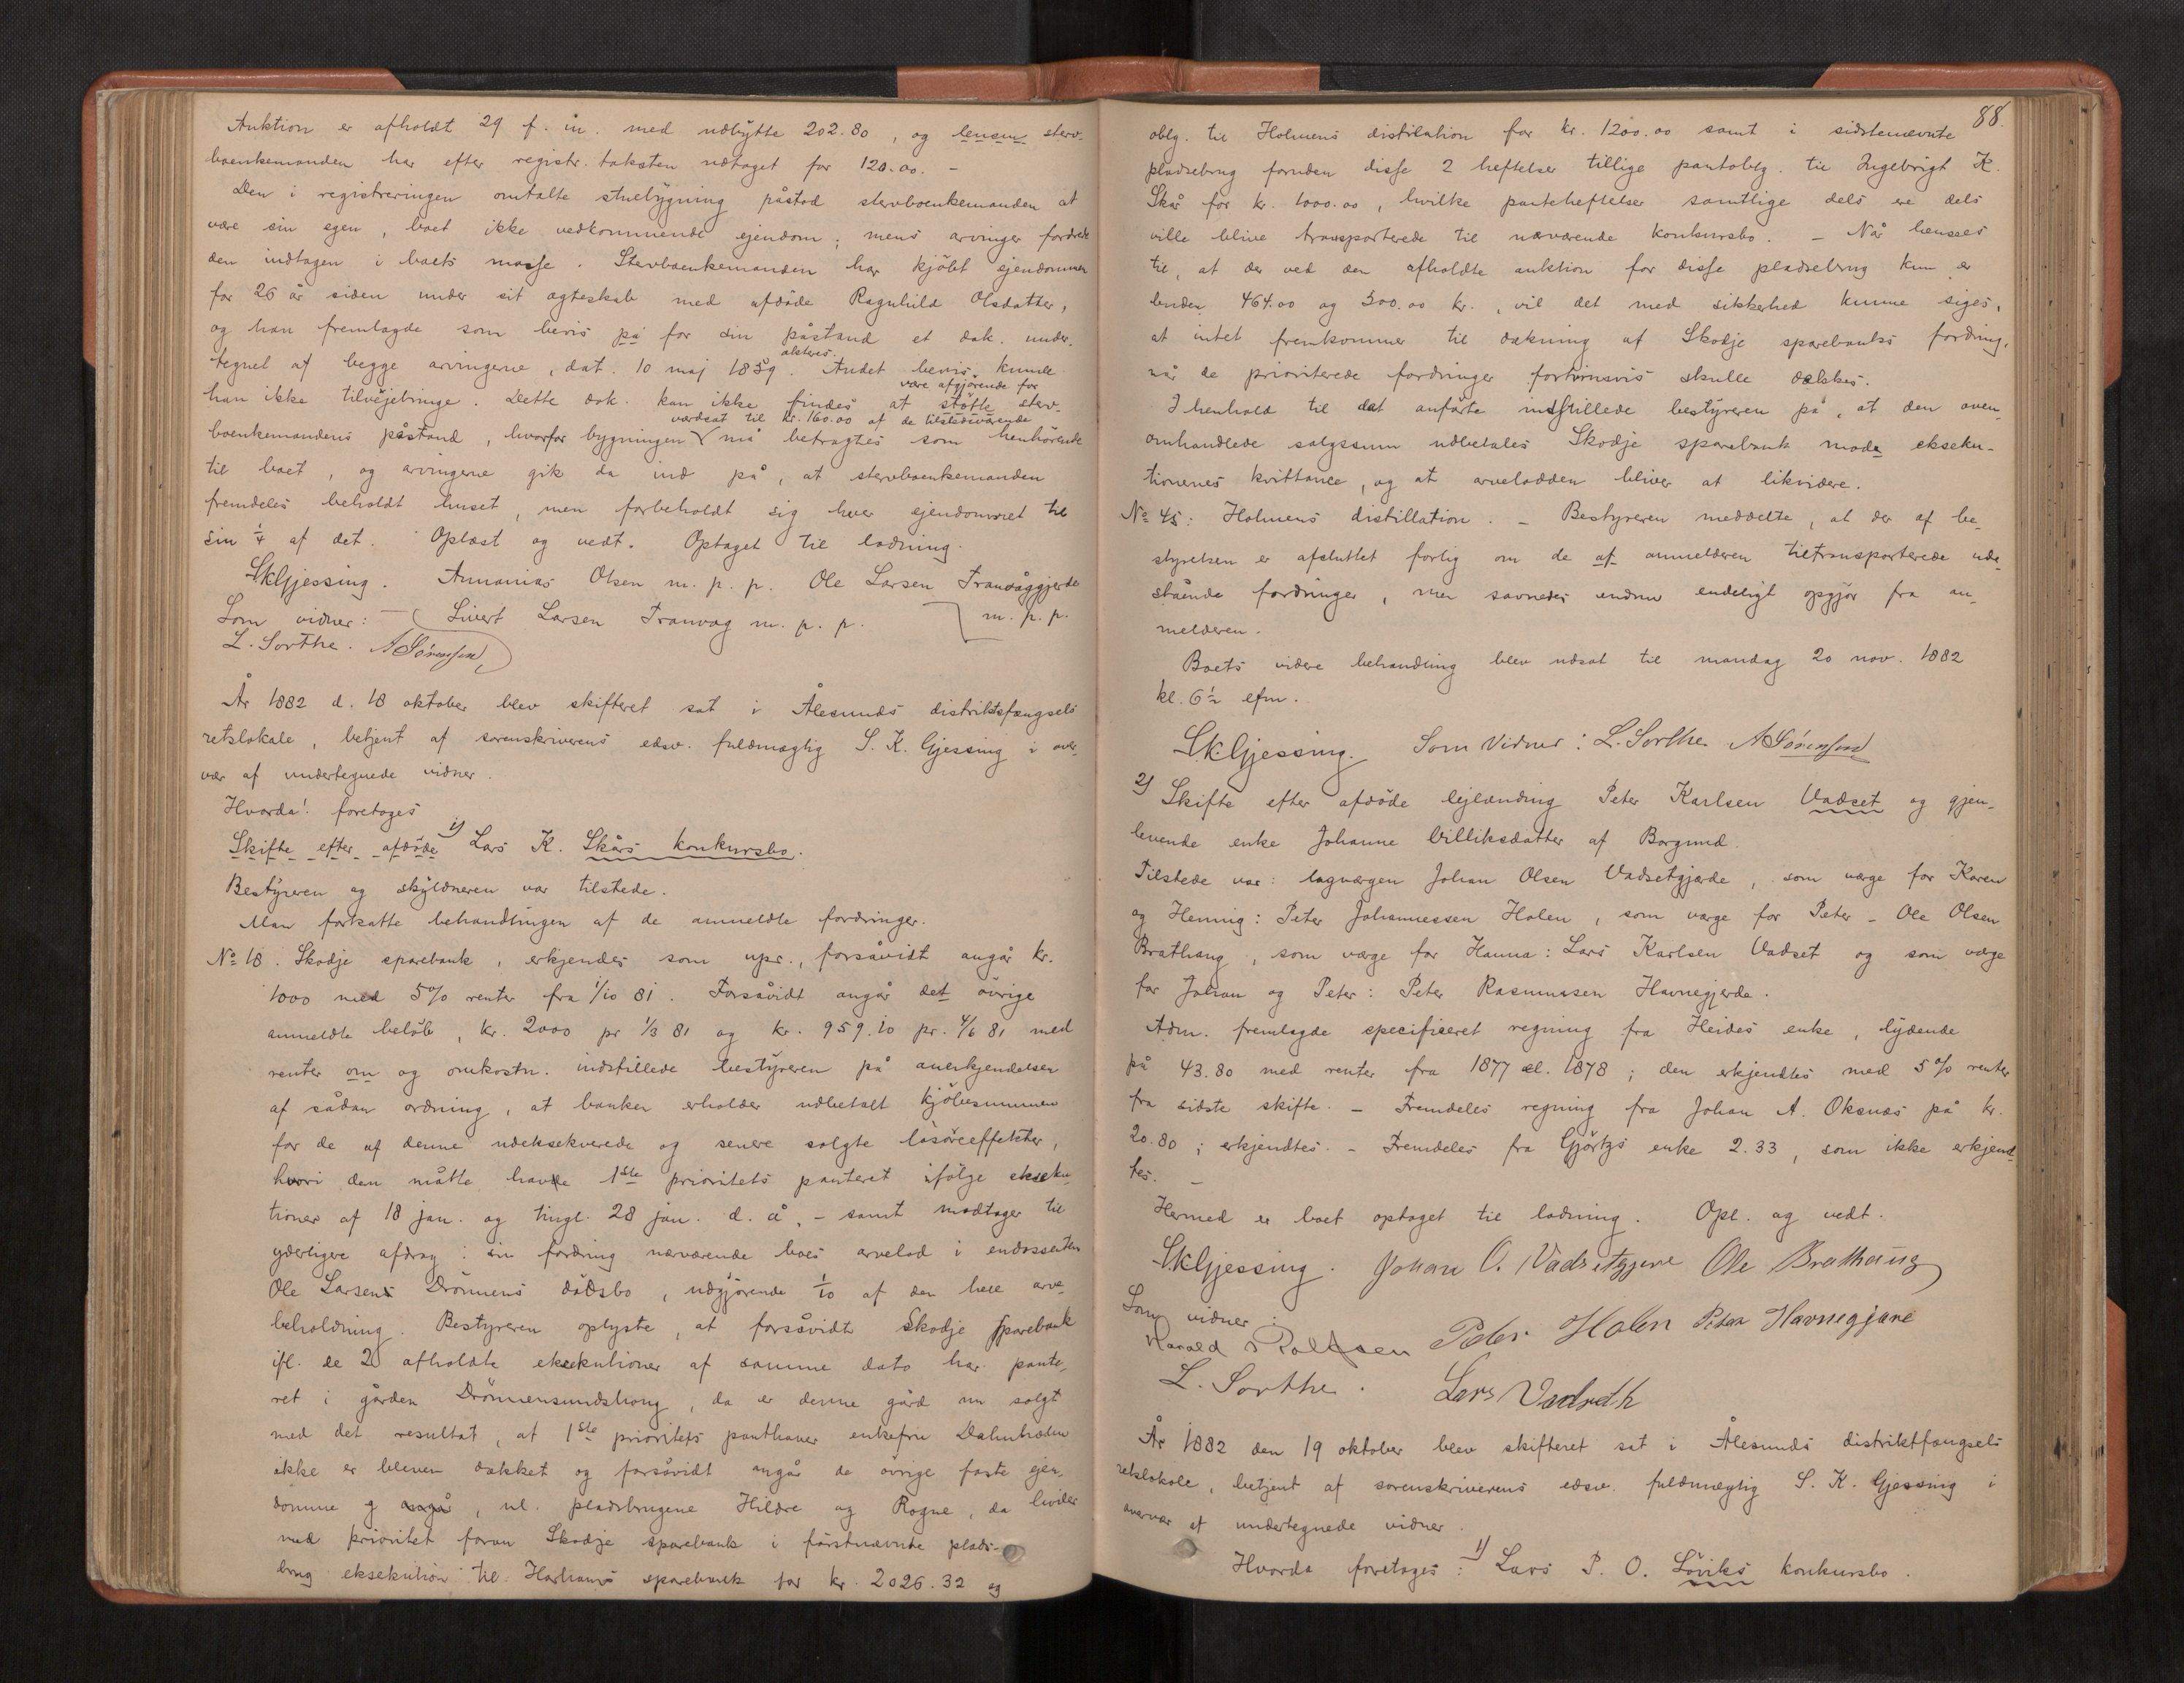 Auktion er afholdt 29 f. m. med udbytte 202.80, og lensm sterv-
boenkemanden har efter registr. taksten udtaget for 120.00. -
Den i registreringen omtalte stuebygning påstod stervboenkemanden at
være sin egen, boet ikke vedkommende ejendom; mens arvinger fordrede
den indtagen i boets masse. Stervboenkemanden har kjöbt ejendommen
for 26 år siden under sit ægteskab med afdöde Ragnhild Olsdatter,
og han fremlagde som bevis på for sin påstand et dok. under-
tegnet af begge arvingerne, dat. 10 maj 1859. akteres. Andet bevis kunde
han ikke tilvejebringe. Dette dok. kan ikke findes at være afgjörende for stötte sterv-
boenkemandens påstand, hvorfor bygningen værdsat til kr. 160.00 af de tilstedeværende må betragtes som henhörende
til boet, og arvingerne gik da ind på, at stervboenkemanden
fremdeles beholdt huset, men forbeholdt sig hver ejendomsret til
sin ¼ af det. Oplæst og vedt. Optaget til lodning.
SKGjessing. Annanias Olsen m. p. p. Ole Larsen Tranvåggjerde
Som vidner: Sivert Larsen Tranvåg m. p. p. m. p. p.
L. Sorthe. A Sörensen
År 1882 d. 18 oktober blev skifteret sat i Ålesunds distriktsfængsels
retslokale, betjent af sorenskriverens edsv. fuldmægtig S. K. Gjessing i over-
vær af undertegnede vidner.
Hvorda: foretoges
Skifte efter afdöde 1) Lars K. Skårs konkursbo.
Bestyreren og skyldneren var tilstede.
Man fortsatte behandlingen af de anmeldte fordringer.
No 18. Skodje sparebank, erkjendes som upr., forsåvidt angår kr.
1000 med 5% renter fra 1/10 81. Forsåvidt angår det övrige
anmeldte belöb, kr. 2000 pr 1/3 81 og kr. 959.10 pr. 4/6 81 med
renter om og omkostn. indstillede bestyreren på anerkjendelsen
af sådan ordning, at banken erholder udbetalt kjöbesummen
for de af denne udeksekverede og senere solgte lösöreeffekter,
hvori den måtte havde 1ste prioritets panteret ifölge ekseku-
tioner af 18 jan. og tingl. 28 jan. d. å, - samt modtager til
yderligere afdrag i sin fordring nærværende boes arvelod i endossenten
Ole Larsens Drönnens dödsbo, udgjörende 1/10 af den hele arve-
beholdning. Bestyreren oplyste, at forsåvidt Skodje sparebank
ifl. de 2 afholdte eksekutioner af samme dato har pante-
ret i gården Drönnensundshong, da er denne gård nu solgt
med det resultat, at 1ste prioritets panthaver enkefru Dahnholm
ikke er bleven dækket og forsåvidt angår de övrige faste ejen-
domme g angår, nl. pladsbrugene Hildre og Rogne, da hvider
med prioritet foran Skodje sparebank i förstnævnte plads-
brug eksekution til Harhams sparebank for kr. 2026.32 og
88.
oblg. til Holmens distillation for kr. 1200.00 samt i sidstenævnte
pladsebrug foruden disse 2 heftelser tillige pantoblg. til Ingebrigt K.
Skår for kr. 1000.00, hvilke panteheftelser samtlige dels ere dels
ville blive transporterede til nærværende konkursbo. - Når hensees
til, at der ved den afholdte auktion for disse pladsebrug kun er
buden 464.00 og 300.00 kr., vil det med sikkerhed kunne siges,
at intet fremkommer til dækning af Skodje sparebanks fordring,
når de prioriterede fordringer fortrinsvis skulle dækkes.
I henhold til det anförte indstillede bestyreren på, at den oven-
omhandlede salgssum udbetales Skodje sparebank mode ekseku-
tionernes kvittance, og at arvelodden bliver at likvidere.
No 45: Holmens distillation. - Bestyreren meddelte, at der af be-
styrelsen er afsluttet forlig om de af anmelderen tiltransporterede ude-
stående fordringer, men savnedes endnu endeligt opgjör fra an-
melderen.
Boets videre behandling blev udsat til mandag 20 nov. 1882
kl. 6½ efm.
SKGjessing. Som Vidner: L. Sorthe. A Sörensen
2) Skifte efter afdöde lejlænding Peter Karlsen Vadset og gjen-
levende enke Johanne Villiksdatter af Borgund.
Tilstede var: lagværgen Johan Olsen Vadsetgjærde, som værge for Karen
og Hennig: Peter Johannessen Holen, som værge for Peter - Ole Olsen
Brathaug, som værge for Hanna: Lars Karlsen Vadset og som værge
for Johan og Peter: Peter Rasmussen Havnegjerde.
Adm. fremlagde specificeret regning fra Heides enke, lydende
på 43.80 med renter fra 1877 el. 1878; den erkjendtes med 5% renter
fra sidste skifte. - Fremdeles regning fra Johan A. Oksnæs på kr.
20.80; erkjendtes. - Fremdeles fra Gjörtz's enke 2.33, som ikke erkjend-
tes. -
Hermed er boet optaget til lodning. Opl. og vedt.
SKGjessing. Johan O. Vadsetgjære Ole Brathaug
Som vidner:
Harald Rolfsen Peder Holen Peter Havnegjære
L. Sorthe. Lars Vadseth
År 1882 den 19 oktober blev skifteret sat i Ålesunds distriktfængsels
retslokale, betjent af sorenskriverens edsv. fuldmægtig S. K. Gjessing i
overvær af undertegnede vidner.
Hvorda foretoges: 1) Lars P. O. Löviks konkursbo.